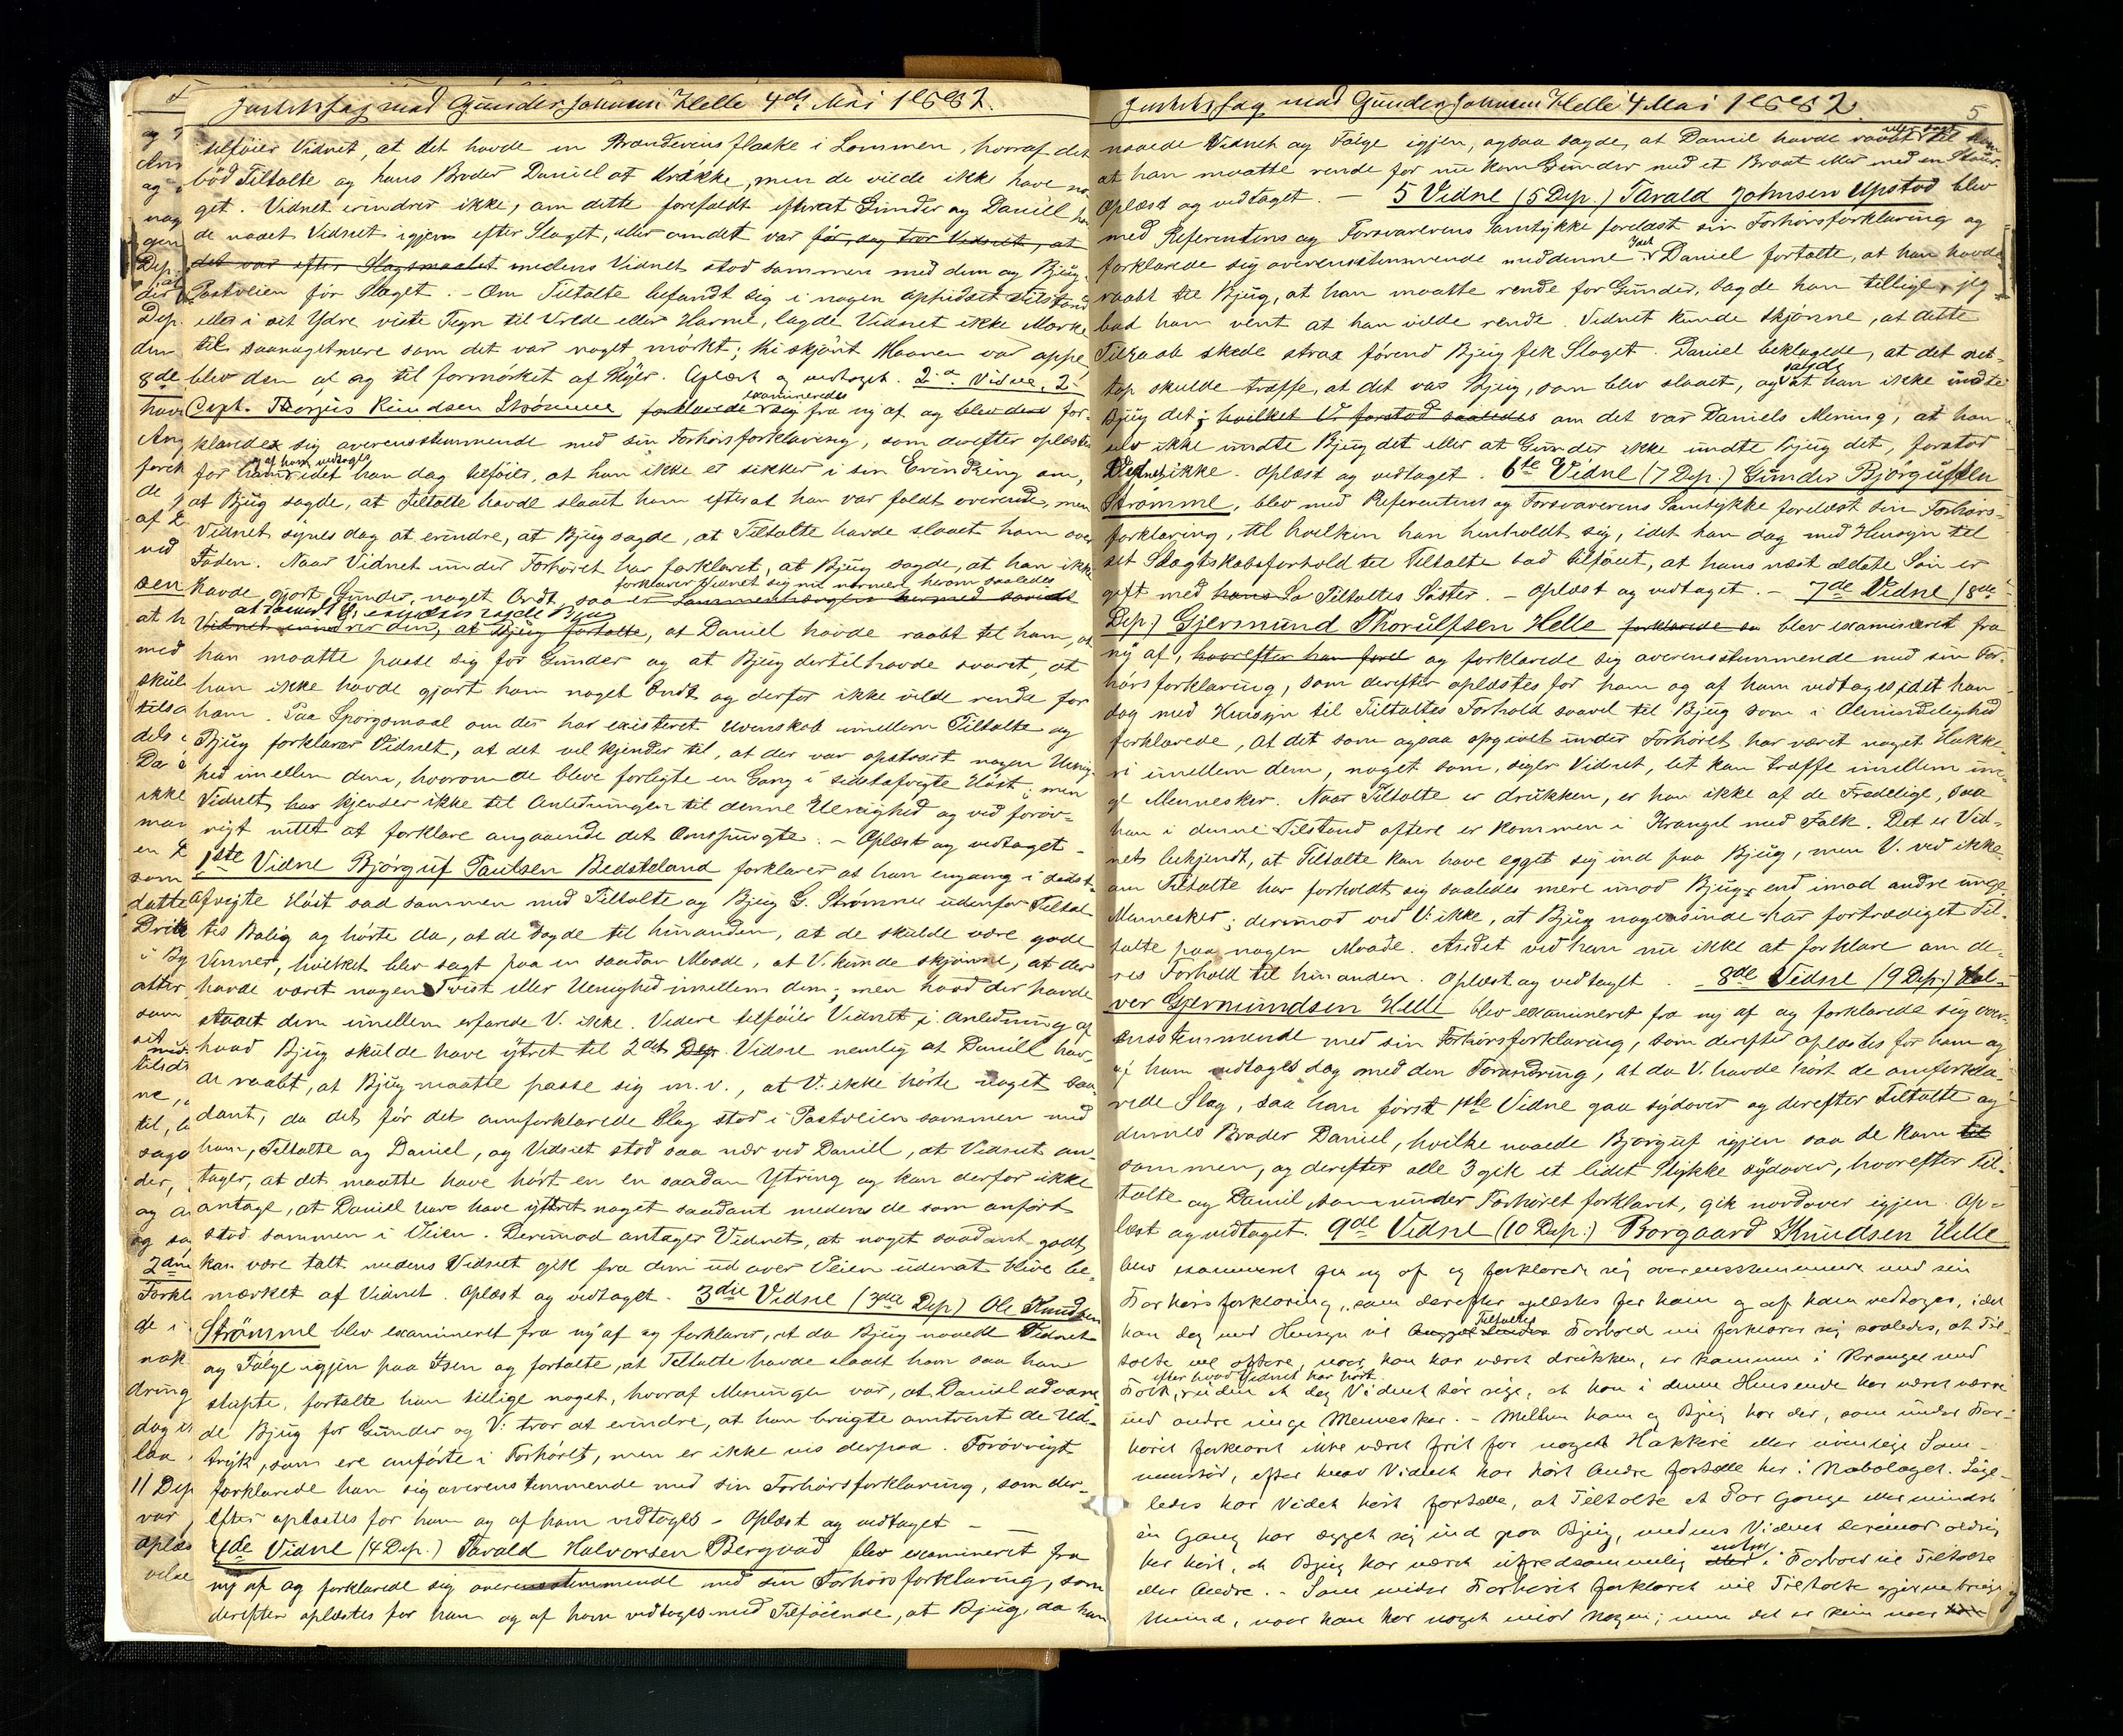 Justitssag mod Gunder Johnsen Helle 4de Mai 1882.
tilføier Vidnet, at det havde en Brændevinsflaske i Lommen, hvoraf det
bød Tiltalte og hans Broder Daniel at drikke, men de vilde ikke have no
get. Vidnet erindrer ikke, om dette forefaldt efterat Gunder og Daniel ha
de naaet Vidnet igjen efter Slaget, eller om det var før, dog tror Vidnet, at
det var efter Slagsmaalet medens Vidnet stod sammen med dem og Bjug
Postveien før Slaget. - Om Tiltalte befandt sig i nogen ophidset Tilstand
eller i sit Ydre viste Tegn til Vrede eller Harme, lagde Vidnet ikke Mærke
til, saameget mere som det var noget mørkt; thi skjønt Maanen var oppe,
blev den af og til formørket af Skyer. Oplæst og vedtaget. 2det Vidne, 2
Dept. Torjus Knudsen Strømme forklarede sig examineredes fra ny af og blev den for-
klarede sig overensstemmende med sin Forhørsforklaring, som derefter oplæstes
for ham og af ham vedtoges, idet han dog tilføier, at han ikke er sikker i sin Erindring om,
at Bjug sagde, at Tiltalte havde slaaet ham efterat han var faldt overende, men
Vidnet synes dog at erindre, at Bjug sagde, at Tiltalte havde slaaet ham over
Foden. Naar Vidnet under Forhøret har forklaret, at Bjug sagde, at han ikke
havde gjort Gunder noget Ondt, saa er Sammenhængen hermed saadan forklarer Vidnet sig nu nærmere herom saaledes
Vidnet erindrer den, at Bjug fortalte, at Daniel havde raabt til ham, at
han maatte passe sig for Gunder og at Bjug dertil havde svaret, at
han ikke havde gjort ham noget Ondt og derfor ikke vilde rende for
ham. Paa Spørgsmaal om der har existeret Uvenskab imellem Tiltalte og
Bjug forklarer Vidnet, at det vel kjender til, at der var opstaaet nogen Uenig-
hed imellem dem, hvorom de bleve forligte en Gang i sidstafvigte Høst; men
Vidnet har kjender ikke til Anledningen til denne Uenighed og ved forøv-
rigt intet at forklare angaaende det Omspurgte. - Oplæst og vedtaget -
1ste Vidne Bjørguf Paulsen Bedsteland forklarer at han engang i sidst-
afvigte Høst sad sammen med Tiltalte og Bjug G. Strømme udenfor Tiltal-
tes Bolig og hørte da, at de sagde til hinanden, at de skulde være gode
Venner, hvilket blev sagt paa en saadan Maade, at V. kunde skjønne, at der
havde været nogen Tvist eller Uenighed imellem dem; men hvad der havde
staaet dem imellem erfarede V. ikke. Videre tilføier Vidnet i Anledning af
hvad Bjug skulde have ytret til 2det Dep. Vidne nemlig at Daniel hav-
de raabt, at Bjug maatte passe sig m. v., at V. ikke hørte noget saa-
dant, da det før det omforklarede Slag stod i Postveien sammen med
ham, Tiltalte og Daniel, og Vidnet stod saa nær ved Daniel, at Vidnet an-
tager, at det maatte have hørt en en saadan Ytring og kan derfor ikke
antage, at Daniel have ytret noget saadant medens de som anført
stod sammen i Veien. Derimod antager Vidnet, at noget saadant godt
kan være talt medens Vidnet gik fra dem ud over Veien udenat blive be-
mærket af Vidnet. Oplæst og vedtaget. 3die Vidne (3die Dep) Ole Knudsen
Strømme blev examineret fra ny af og forklarer, at da Bjug naaede Vidnet
og Følge igjen paa Isen og fortalte, at Tiltalte havde slaaet ham saa han
stupte, fortalte han tillige noget, hvoraf Meningen var, at Daniel advare-
de Bjug for Gunder og V. tror at erindre, at han brugte omtrent de Ud-
tryk, som ere anførte i Forhøret, men er ikke vis derpaa. Forøvrigt
forklarede han sig overensstemmende med sin Forhørsforklaring, som der-
efter oplæstes for ham og af ham vedtoges - Oplæst og vedtaget -
4de Vidne (4 Dep.) Tarald Halvorsen Bergvad blev examineret fra
ny af og forklarede sig overensstemmende med sin Forhørsforklaring, som
derefter oplæstes for ham og af ham vedtoges med Tilføiende, at Bjug, da han
Justitssag mod Gunder Johnsen Helle 4 Mai 1882.
5
naaede Vidnet og Følge igjen, ogsaa sagde, at Daniel havde raabt til ham,
at han maatte rende for nu kom Gunder med et Brot eller med en Staur.
Oplæst og vedtaget. - 5 Vidne (5 Dep.) Tarald Johnsen Upstad blev
med Referentens og Forsvarerens Samtykke forelæst sin Forhørsforklaring og
forklarede sig overensstemmende med denne. Daniel fortalte, at han havde
raabt til Bjug, at han maatte rende for Gunder, sagde han tillige, jeg
bad ham vent at han vilde rende. Vidnet kunde skjønne, at dette
Tilraab skede strax førend Bjug fik Slaget. Daniel beklagede, at det net-
top skulde træffe, at det var Bjug, som blev slaaet, og sagde at han ikke undte
Bjug det; hvilket V. forstod saaledes om det var Daniels Mening, at han
selv ikke undte Bjug det eller at Gunder ikke undte Bjug det, forstod
Vidnet ikke. Oplæst og vedtaget. 6te Vidne (7 Dep.) Gunder Bjørgufsen
Strømme, blev med Referentens og Forsvarerens Samtykke forelæst sin Forhørs-
forklaring, til hvilken han henholdt sig, idet han dog med Hensyn til
sit Slagtskabsforhold til Tiltalte bad tilføiet, at hans næst ældste Søn er
gift med hans So Tiltaltes Søster. - Oplæst og vedtaget. - 7de Vidne (8de
Dep.) Gjermund Thorulfsen Helle forklarede sa blev examineret fra
ny af, hvorefter han forel og forklarede sig overensstemmende med sin For-
hørsforklaring, som derefter oplæstes for ham og af ham vedtoges, idet han
dog med Hensyn til Tiltaltes Forhold saavel til Bjug som i Almindelighed
forklarede, at det som ogsaa opgivet under Forhøret har været noget Hakke-
ri imellem dem, noget som, siger Vidnet, let kan træffe imellem un-
ge Mennesker. Naar Tiltalte er drukken, er han ikke af de Fredelige, saa
han i denne Tilstand oftere er kommen i Krangel med Folk. Det er Vid-
nets bekjendt, at Tiltalte kan have egget sig ind paa Bjug, men V. ved ikke
om Tiltalte har forholdt sig saaledes mere imod Bjug, end imod andre unge
Mennesker; derimod ved V. ikke, at Bjug nogensinde har fortrædiget Til-
talte paa nogen Maade. Andet ved han nu ikke at forklare om de-
res Forhold til hinanden. Oplæst og vedtaget. - 8de Vidne (9 Dep.) Hal-
vor Gjermundsen Helle blev examineret fra ny af og forklarede sig over-
ensstemmende med sin Forhørsforklaring, som derefter oplæstes for ham og
af ham vedtoges dog med den Forandring, at da V. havde hørt de omforkla-
rede Slag, saa han først 1ste Vidne gaa sydover og derefter Tiltalte og
dennes Broder Daniel, hvilke naaede Bjørguf igjen saa de kom til
sammen, og derefter alle 3 gik et lidet Stykke sydover, hvorefter Til-
talte og Daniel, som under Forhøret forklaret, gik nordover igjen. Op-
læst og vedtaget. 9de Vidne (10 Dep.) Borgaard Knudsen Helle
blev examineret fra ny af og forklarede sig overensstemmende med sin
Forhørsforklaring, som derefter oplæstes for ham og af ham vedtoges, idet
han dog med Hensyn til Tiltaltes Forhold nu forklarer sig saaledes, at Til-
talte vel oftere, naar han har været drukken, er kommen i Krangel med
Folk, efter hvad Vidnet har hørt, uden at dog Vidnet tør sige, at han i denne Henseende har været værre
end andre unge Mennesker. - Mellem ham og Bjug har der, som under For-
høret forklaret ikke været frit for noget Hakkeri eller uvenlige Sam-
menstød, efter hvad Vidnet har hørt Andre fortælle her i Nabolaget. Lige-
ledes har Vidnet hørt fortælle, at Tiltalte et Par Gange eller mindst
én Gang har egget sig ind paa Bjug, medens Vidnet derimod aldrig
har hørt, at Bjug har været ufredsommelig enten i Forhold til Tiltalte
eller Andre. - Som under Forhøret forklaret vil Tiltalte gjerne bruge
Mund, naar han har noget imod Nogen; men det er kun naar